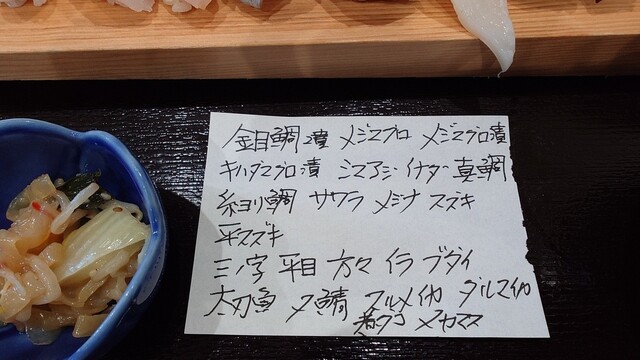 金目鯛漬 メジマグロ メジマグロ漬
キハダマグロ漬 シマアジ イナダ 真鯛
糸ヨリ鯛 サワラ メジナ スズキ
平スズキ
三ノ字 平目 方々 イラ ブダイ
太刀魚 〆鯖 スルメイカ ダルマイカ
煮ダコ メカマス